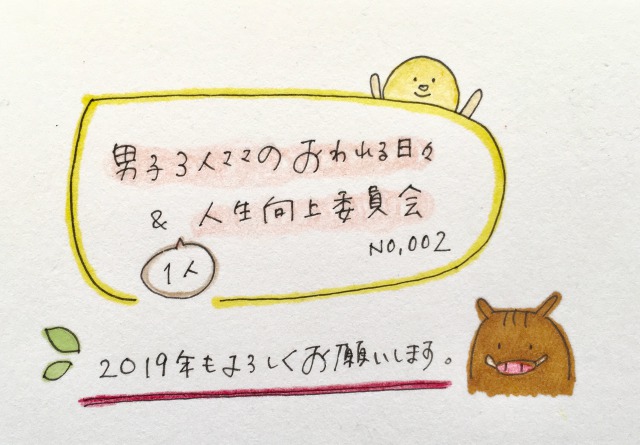 男子3人ママのおわれる日々
& 人生向上委員会
1人
NO,002
2019年もよろしくお願いします。